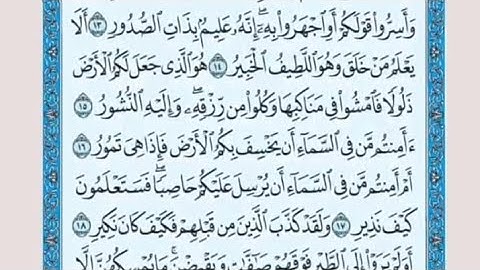 وَأَسِرُّوا۟ قَوْلَكُمْ أَوِ ٱجْهَرُوا۟ بِهِۦٓ ۖ إِنَّهُۥ عَلِيمٌۢ بِذَاتِ ٱلصُّدُورِ ١٣ أَلَا
يَعْلَمُ مَنْ خَلَقَ وَهُوَ ٱللَّطِيفُ ٱلْخَبِيرُ ١٤ هُوَ ٱلَّذِى جَعَلَ لَكُمُ ٱلْأَرْضَ
ذَلُولًا فَٱمْشُوا۟ فِى مَنَاكِبِهَا وَكُلُوا۟ مِن رِّزْقِهِۦ ۖ وَإِلَيْهِ ٱلنُّشُورُ ١٥
ءَأَمِنتُم مَّن فِى ٱلسَّمَآءِ أَن يَخْسِفَ بِكُمُ ٱلْأَرْضَ فَإِذَا هِىَ تَمُورُ ١٦
أَمْ أَمِنتُم مَّن فِى ٱلسَّمَآءِ أَن يُرْسِلَ عَلَيْكُمْ حَاصِبًا ۖ فَسَتَعْلَمُونَ
كَيْفَ نَذِيرِ ١٧ وَلَقَدْ كَذَّبَ ٱلَّذِينَ مِن قَبْلِهِمْ فَكَيْفَ كَانَ نَكِيرِ ١٨
أَوَلَمْ يَرَوْا۟ إِلَى ٱلطَّيْرِ فَوْقَهُمْ صَٰٓفَّٰتٍ وَيَقْبِضْنَ ۚ مَا يُمْسِكُهُنَّ إِلَّا